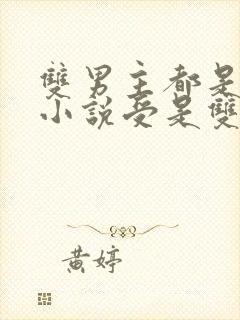 雙男主都是
小說受是雙
黃婷